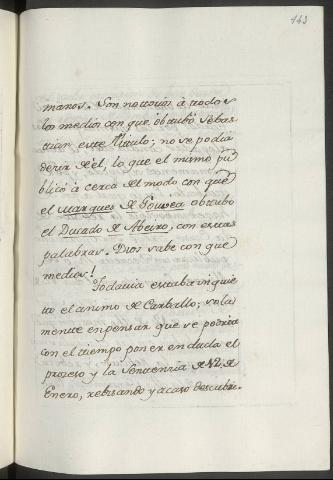 143
manos. Son notorios à todos
los medios con que obtubo Sebas
tian este titulo; no se podia
decir de èl, lo que el mismo pu
blicò à cerca del modo con que
el Marques de Gouvea obtubo
el Ducado de Abeiro, con estas
palabras. Dios sabe con que
medios!
Todavia estaba inquie
to el animo de Carballo; sola
mente en pensar que se podria
con el tiempo poner en duda el
proceso y la Sentencia de 12. de
Enero, rebisando y acaso descubri-